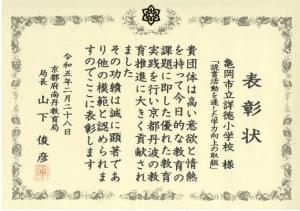 表彰状
亀岡市立詳徳小学校 様
「読書活動を通した学力向上の取組」
貴団体は高い意欲と情熱
を持って今日的な教育の
課題に即した優れた教育
実践を行い京都丹波の教
育推進に大きく貢献され
ました
その功績は誠に顕著であ
り他の模範と認められま
すのでここに表彰します
令和五年二月二十八日
京都府南丹教育局
局長 山下 俊彦